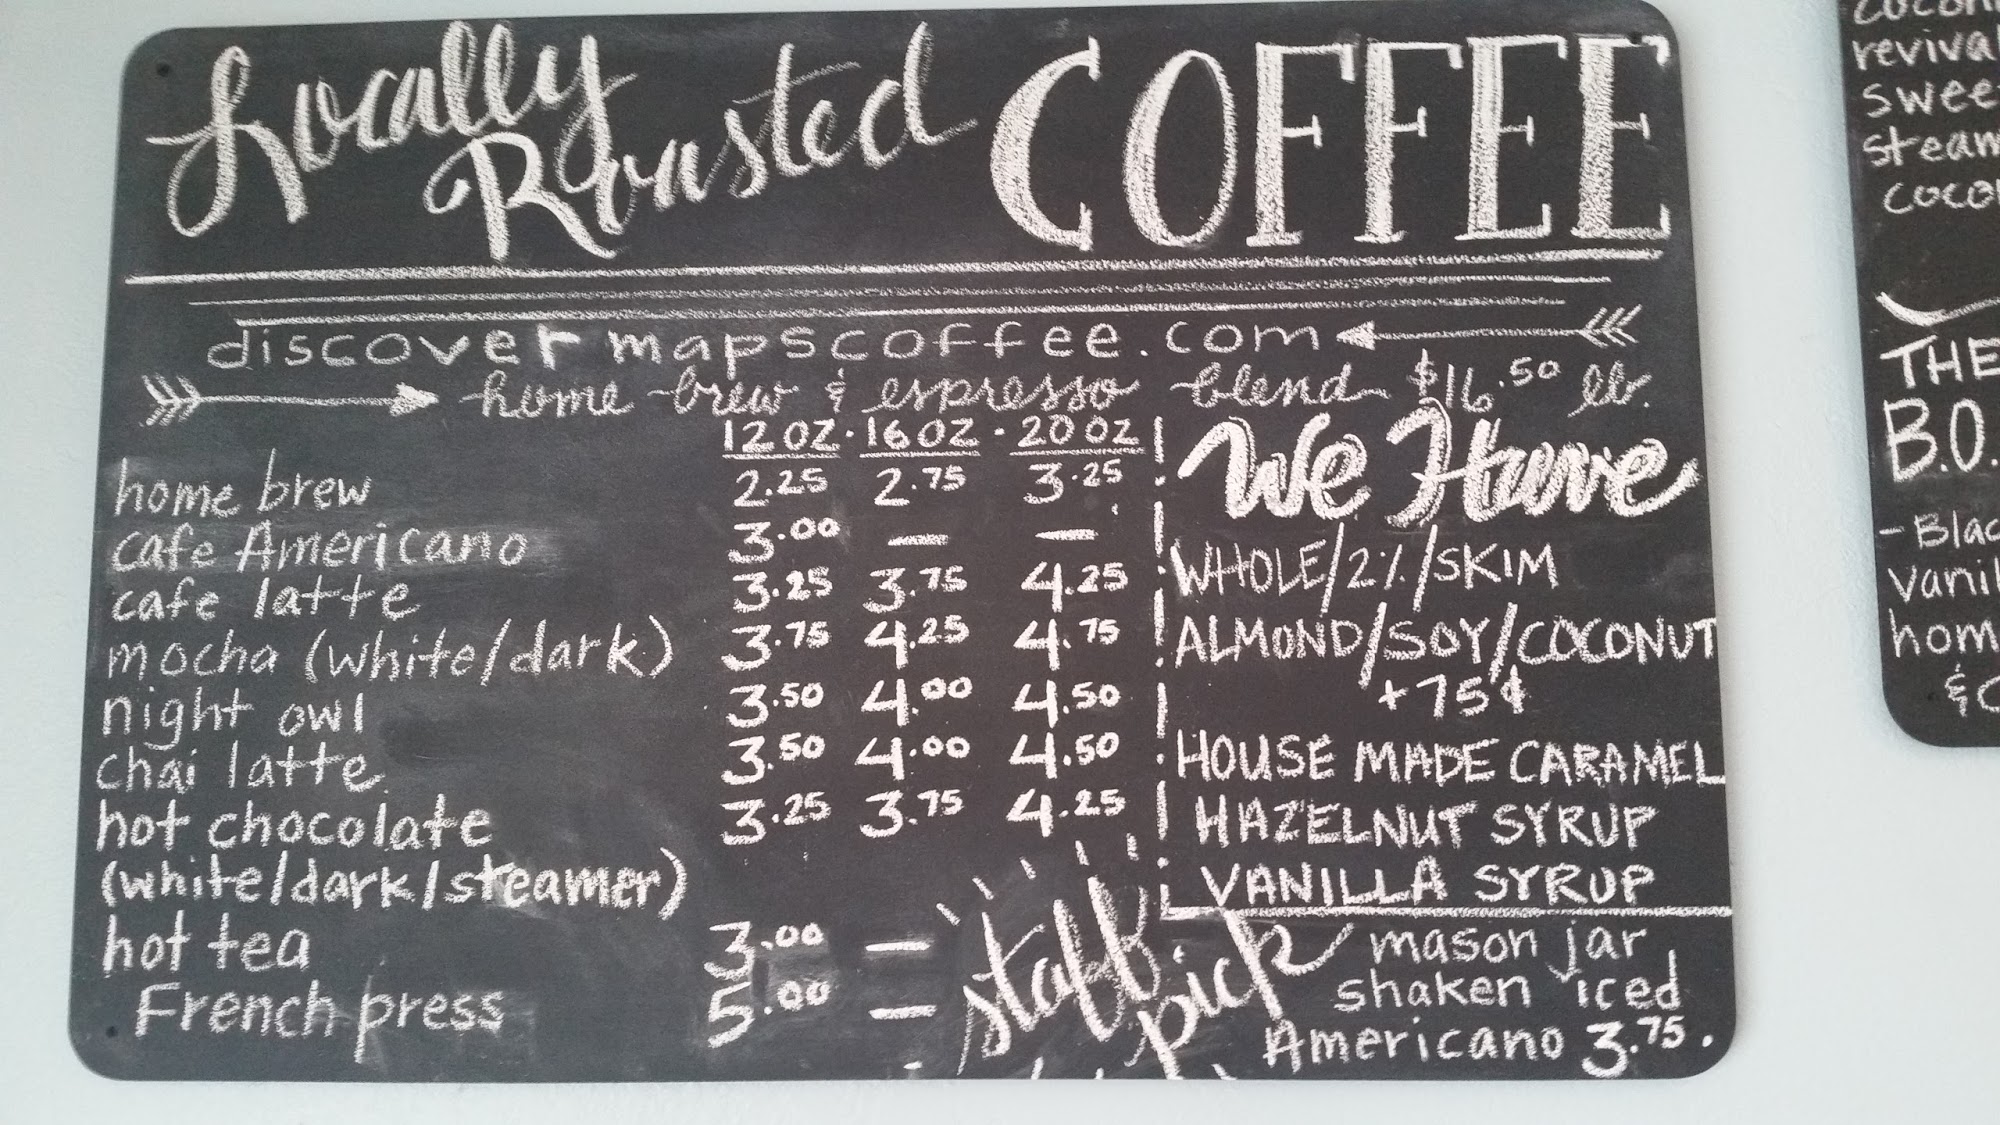 Locally Roasted COFFEE
discovermapscoffee.com
home brew & espresso blend $16.50 lb.
12 OZ · 16 OZ · 20 OZ
home brew 2.25 2.75 3.25
cafe Americano 3.00 — —
cafe latte 3.25 3.75 4.25
mocha (white/dark) 3.75 4.25 4.75
night owl 3.50 4.00 4.50
chai latte 3.50 4.00 4.50
hot chocolate 3.25 3.75 4.25
(white/dark/steamer)
hot tea 3.00 —
French press 5.00 —
We Have
WHOLE/2%/SKIM
ALMOND/SOY/COCONUT
+75¢
HOUSE MADE CARAMEL
HAZELNUT SYRUP
VANILLA SYRUP
staff pick
mason jar
shaken iced
Americano 3.75.
reviva
swee
steam
coco
THE
B.O.
- Blac
vanil
hom
&